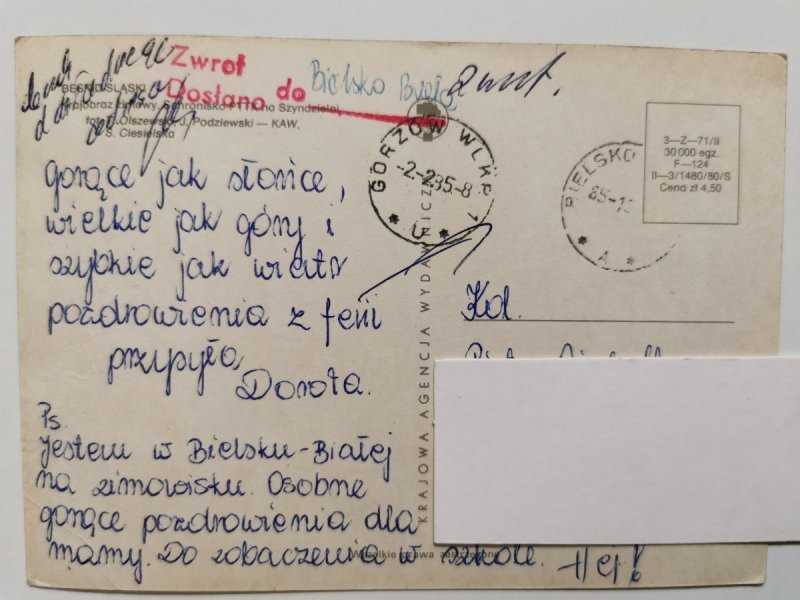 Zwrot
Dosłano do Bielsko Biała
zwrot.
BESKID ŚLĄSKI
Krajobraz zimowy. Schronisko PTTK na Szyndzielni
fot. J. Olszewski, J. Podziewski — KAW,
S. Ciesielska
GORZÓW WLKP. 1
-2-2.85.-8
* U *
BIELSKO
85-1
* A *
3—Z—71/II
30 000 egz.
F—124
II—3/1480/80/S
Cena zł 4,50
gorące jak słońce,
wielkie jak góry i
szybkie jak wiatr
pozdrowienia z ferii
przysyła
Dorota.
Ps.
Jestem w Bielsku-Białej
na zimowisku. Osobne
gorące pozdrowienia dla
mamy. Do zobaczenia w szkole. Hej!
KRAJOWA AGENCJA WYDAWNICZA
Kol.
Wszelkie prawa zastrzeżone